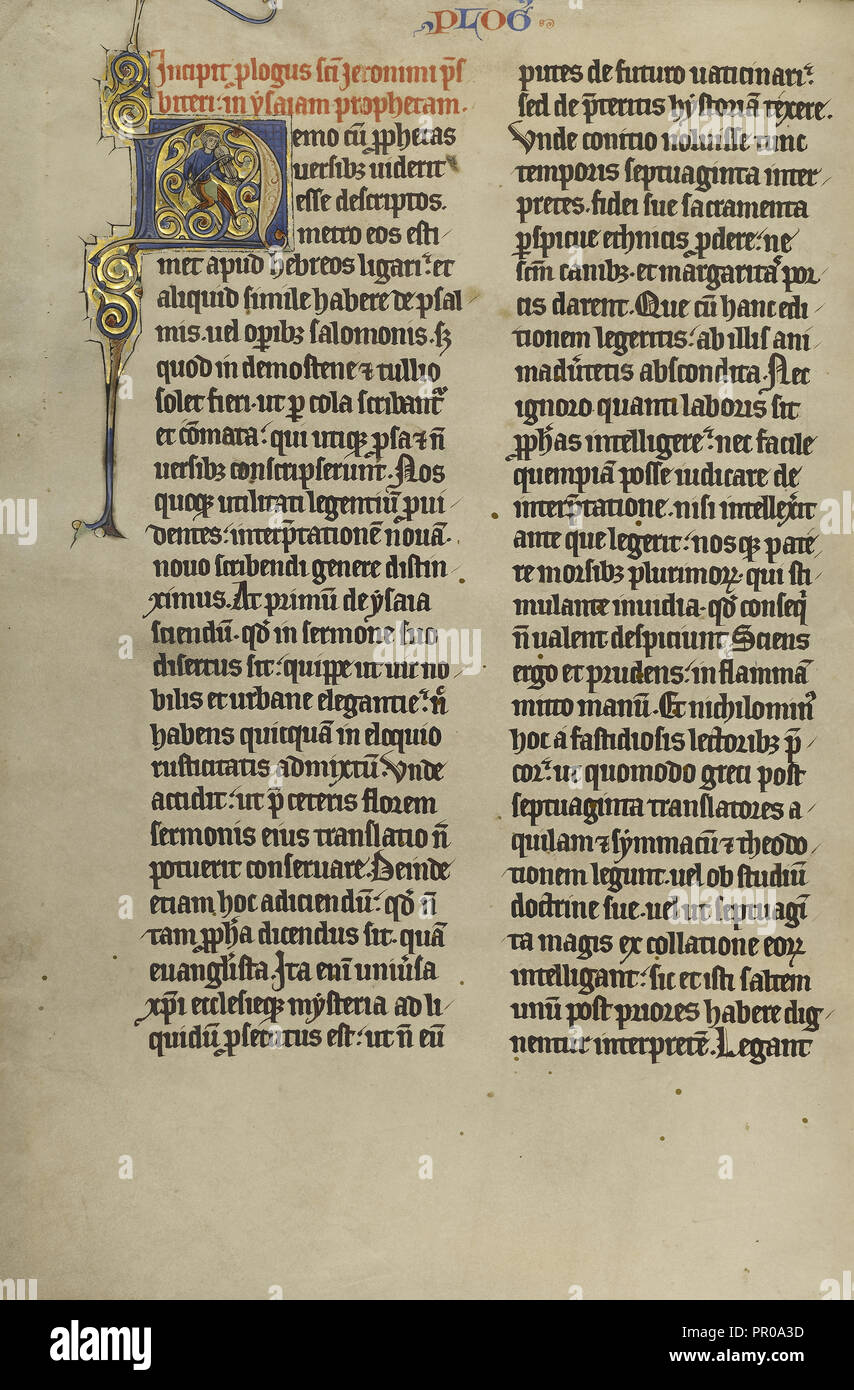 PLOG̃
Incipit ꝓlogus sc̃i Jeronimi p̃s
biteri: in ẏsaiam prophetam.
Nemo cũ ꝓphetas
uersibꝫ uiderit
esse descriptos.
metro eos esti/
met apud hebreos ligari: et
aliquid simile habere de psal/
mis. uel oꝑibꝫ salomonis. sꝫ
quod in demostene ⁊ tullio
solet fieri. ut ꝑ cola scribant᷑
et cõmata: qui utiqꝫ ꝓsa ⁊ ñ
uersibꝫ conscripserunt. Nos
quoqꝫ utilitati legentiũ ꝓui/
dentes: interp̃tationẽ nouã.
nouo scribendi genere distin/
ximus. At primũ de ẏsaia
sciendũ. qđ in sermone suo
disertus sit: quippe ut uir no/
bilis et urbane elegantie: ñ
habens quicquã in eloquio
rusticitatis admixtũ. Vnde
accidit: ut p̃ ceteris florem
sermonis eius translatio ñ
potuerit conseruare. Deinde
etiam hoc adiciendũ: qđ ñ
tam ꝓpħa dicendus sit. quã
euangl̃ista. Ita enĩ uniũsa
xp̃i ecclesieqꝫ mẏsteria ad li/
quidũ ꝓsecutus est: ut ñ eũ
putes de futuro uaticinari:
sed de p̃teritis hẏstoriã texere.
Vnde conicio noluisse tunc
temporis septuaginta inter/
pretes. fidei sue sacramenta
ꝑspicue ethnicis ꝓdere: ne
sc̃m canibꝫ. et margaritas por/
cis darent. Que cũ hanc edi/
tionem legeritis: ab illis ani/
maduẽtetis abscondita. Nec
ignoro quanti laboris sit
ꝓpħas intelligere: nec facile
quempiã posse iudicare de
interp̃tatione. nisi intellex̃it
ante que legerit: nosqꝫ pate/
re morsibꝫ plurimoꝝ. qui sti/
mulante inuidia. qđ conseq̃
ñ ualent despiciunt. Sciens
ergo et prudens: in flammã
mitto manũ. Et nichilomin᷒
hoc a fastidiosis lectoribꝫ p̃/
cor: ut quomodo greci post
septuaginta translatores a/
quilam ⁊ sẏmmacũ ⁊ theodo/
tionem legunt. uel ob studiũ
doctrine sue. uel ut septuagĩ/
ta magis ex collatione eoꝝ
intelligant: sic et isti saltem
unũ post priores habere dig/
nentur interpretẽ. Legant
alamy
PR0A3D
www.alamy.com